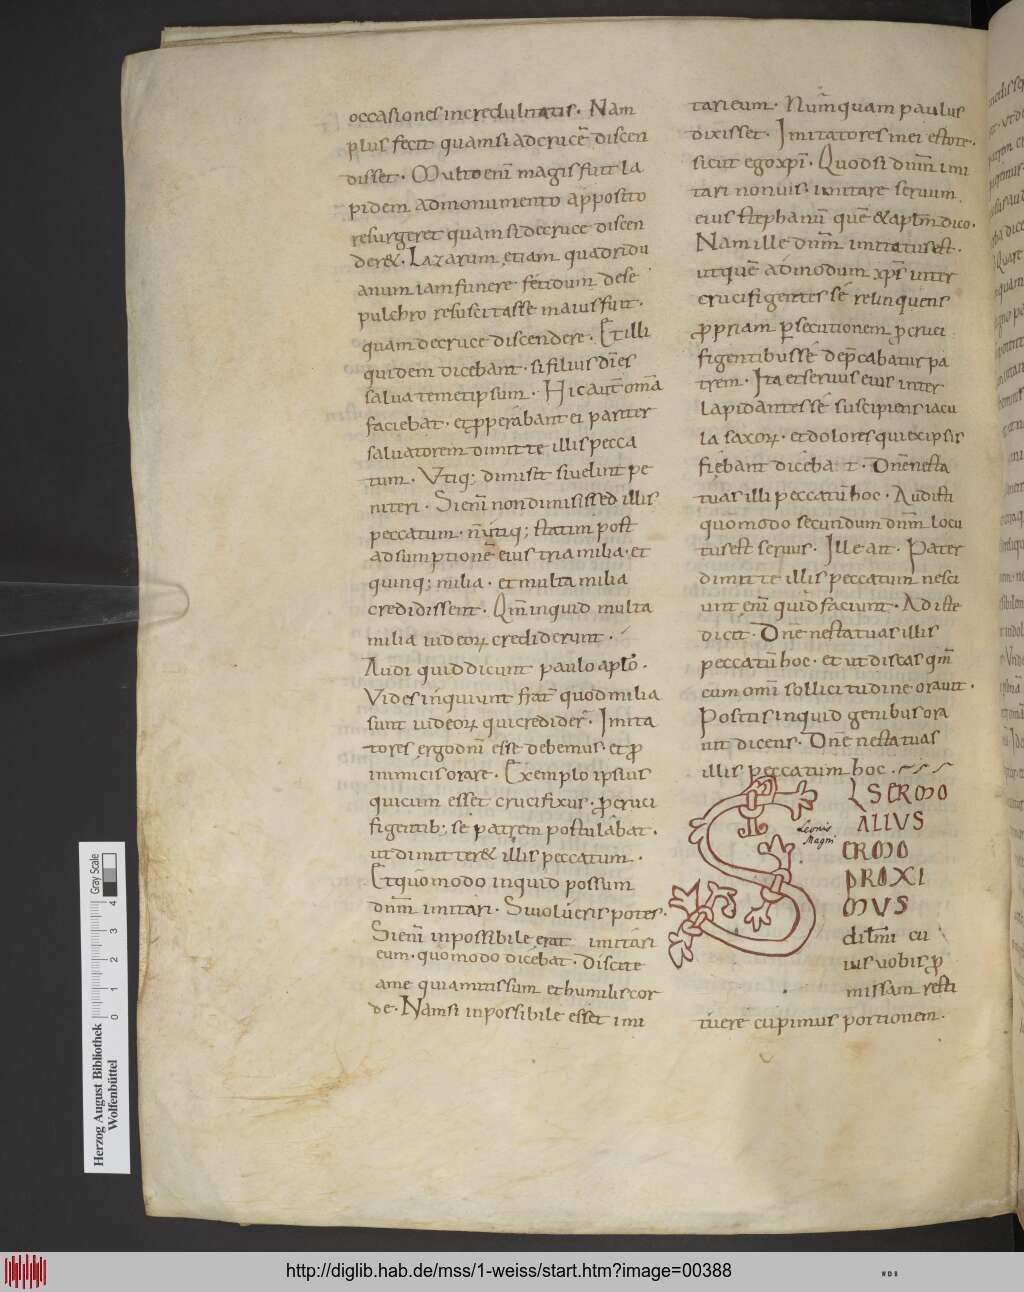 occasionesincredulitatis. Nam
plus fecit quamsiadcrucē discen
disset. Multoenī magisfuit la
pidem admonumento apposito
resurgeret quamsidecruce discen
der&. Lazarum etiam quadridu
anumiamfunere fetidum dese
pulchro resuscitasse maiusfuit.
quamdecruce discendere. Et illi
quidem dicebant. sifilius dī es
saluatemetipsum. Hicaut̄ omā
faciebat. et ꝓperabant ei pariter
saluatorem dimitte illispecca
tum. Utiq; dimiset siuelint pe
niteri. Sienī nondimisissed illis
peccatum. n̄ utiq; statim post
adsumptionē eius tria milia. et
quinq; milia. et multa milia
credidissent. Qm̄ inquid multa
milia iudeoꝝ crediderunt.
Audi quiddicunt paulo aplō.
Vides inquiunt frat̄ quod milia
sunt iudeoꝝ quicredider̄. Imita
tores ergodnī esse debemus. et ꝓ
inimicisorare. Exemplo ipsius
quicum esset crucifixus. ꝓcruci
figentib; sé patrem postulabat.
ut dimitter& illis peccatum.
Etquomodo inquid possum
dnm̄ imitari. Siuolueris potes.
Sienī inpossibile erat imitari
eum. quomodo dicebat. Discite
ame quiamitissum ethumiliscor
de. Namsi inpossibile esset imi
tarieum. Numquam paulus
dixisset. Imitatores mei estote.
sicut egoxp̄i. Quodsi dnm̄ imi
tari nonuis. imitare seruum
eius stephanū quē &aplm̄ dico.
Namille dnm̄ imitatusest.
utquē admodum xp̄s inter
crucifigentes sé relinquens
ꝓpriam ꝑsecutionem ꝓcruci
figentibus sé dep̄cabatur pa
trem. Ita etseruus eius inter
lapidantes sé suscipiens iacu
la saxoꝝ. et dolores quiexipsis
fiebant diceba t. Dnē nesta
tuas illi peccatū hoc. Audisti
quomodo secundum dnm̄ locu
tusest seruus. Ille ait. Pater
dimitte illis peccatum nesci
unt enī quid faciunt. Adiste
dicit. Dnē nestatuas illis
peccatū hoc. et ut discas qm̄
cum omī sollicitudine orauit.
Positis inquid genibus ora
uit dicens. Dnē nestatuas
illis peccatum hoc.
SERMO
ALIUS
Leonis
Magni
ERMO
PROXI
MUS
dilm̄i cu
ius uobis ꝓ
missam resti
tuere cupimus portionem.
Gray Scale
0 1 2 3 4
Herzog August Bibliothek
Wolfenbüttel
http://diglib.hab.de/mss/1-weiss/start.htm?image=00388